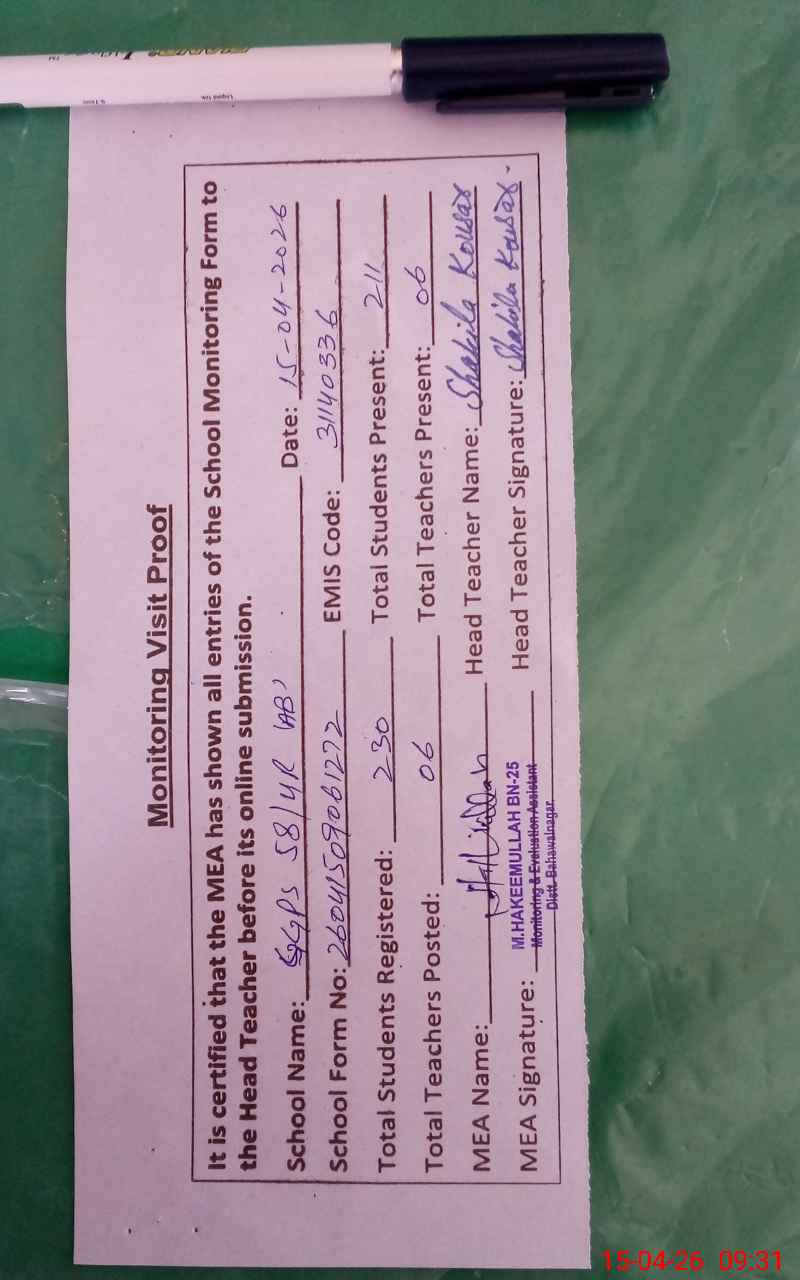 Monitoring Visit Proof
It is certified that the MEA has shown all entries of the School Monitoring Form to
the Head Teacher before its online submission.
School Name: GGPS 58/4R 'AB' Date: 15-04-2026
School Form No: 26041509061272 EMIS Code: 31140336
Total Students Registered: 230 Total Students Present: 211
Total Teachers Posted: 06 Total Teachers Present: 06
MEA Name: Head Teacher Name: Shakila Kousar
M.HAKEEMULLAH BN-25
MEA Signature: Monitoring & Evaluation Assistant Head Teacher Signature: Shakila Kousar.
Distt. Bahawalnagar
15-04-26 09:31